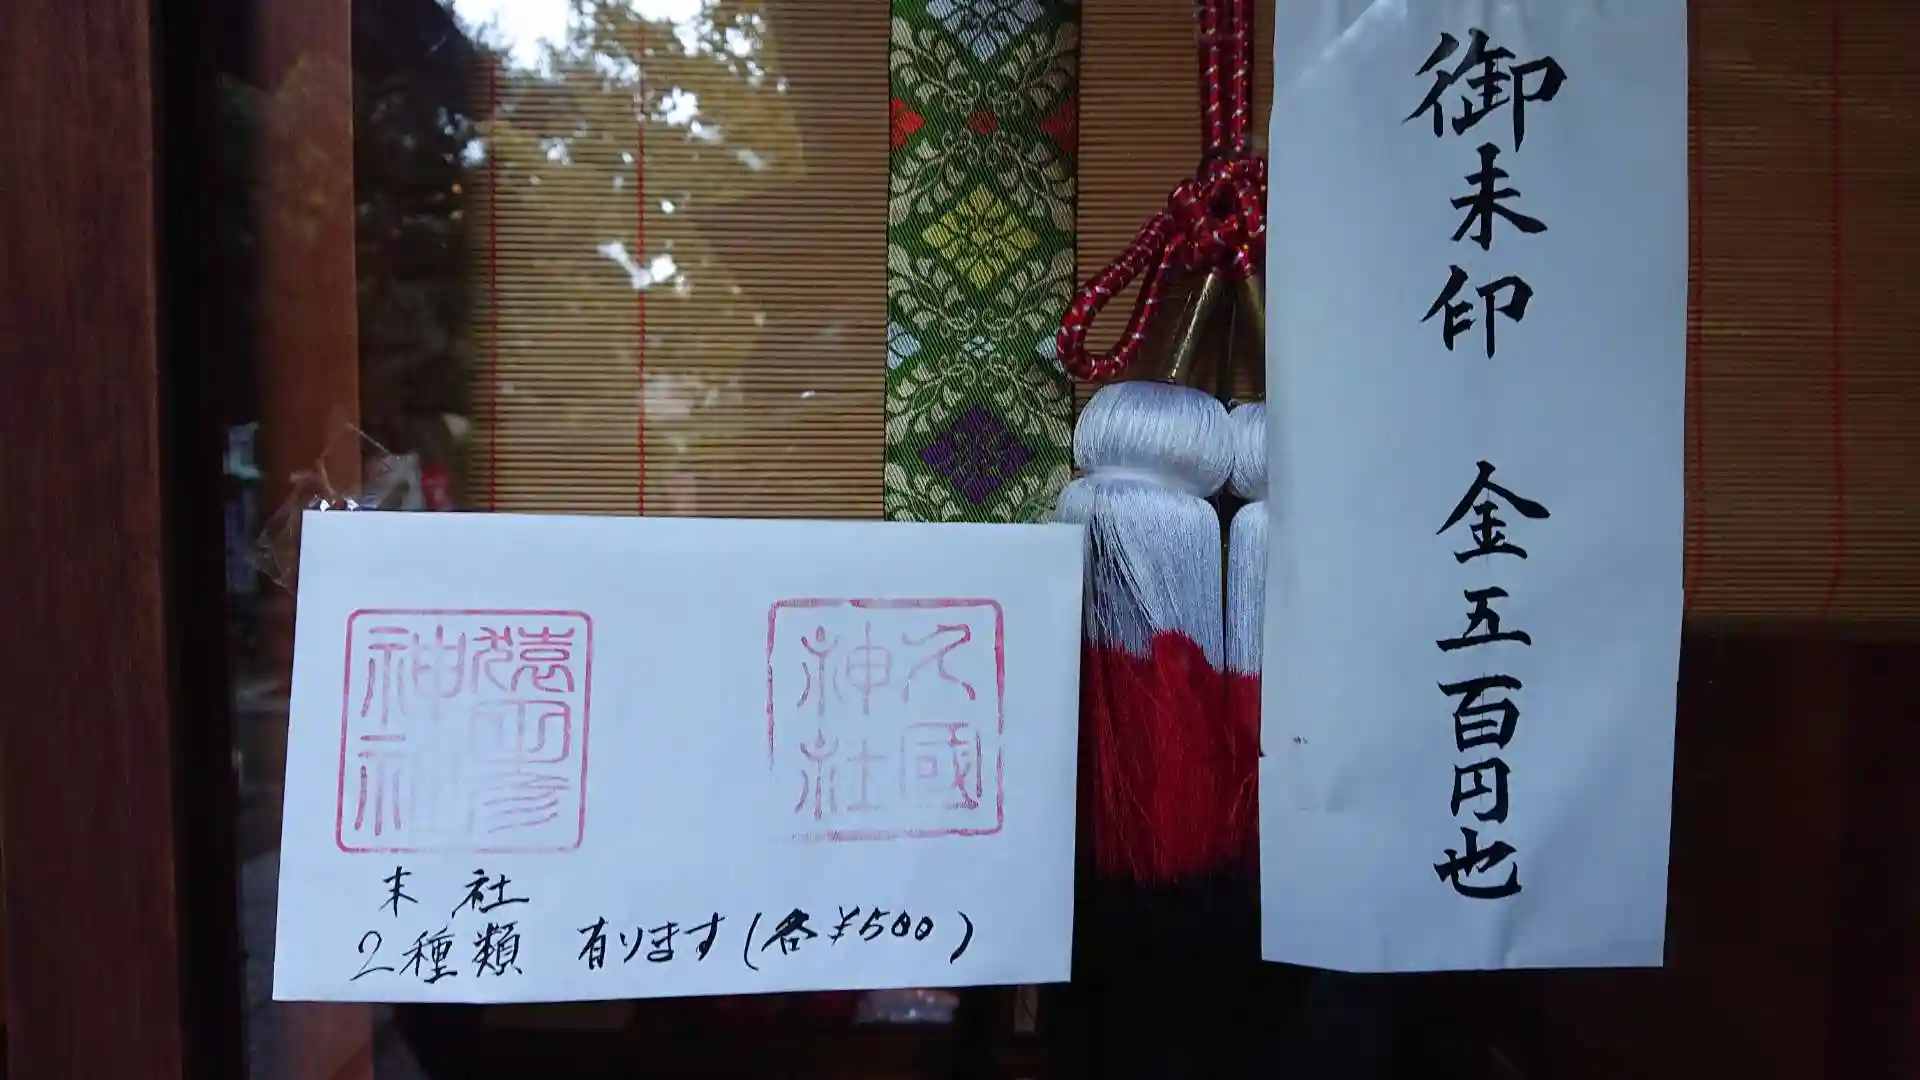 御朱印 金五百円也
久國
神社
猿田彦
神社
末社
2種類 有ります(各¥500)